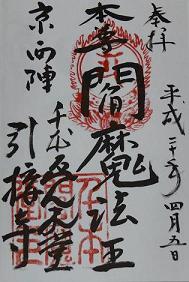 奉拝
平成二十年四月五日
本尊
閻魔法王
京西陣
千本ゑんま堂
引接寺